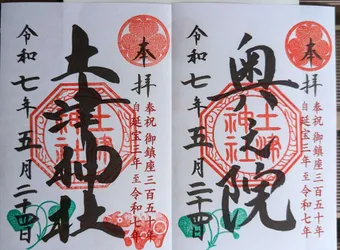 奉拝
奉祝 御鎮座三百五十年
自延宝三年 至令和七年
土津神社
土津神社
令和七年五月二十四日
奉拝
奉祝 御鎮座三百五十年
自延宝三年 至令和七年
奥之院
土津神社
令和七年五月二十四日